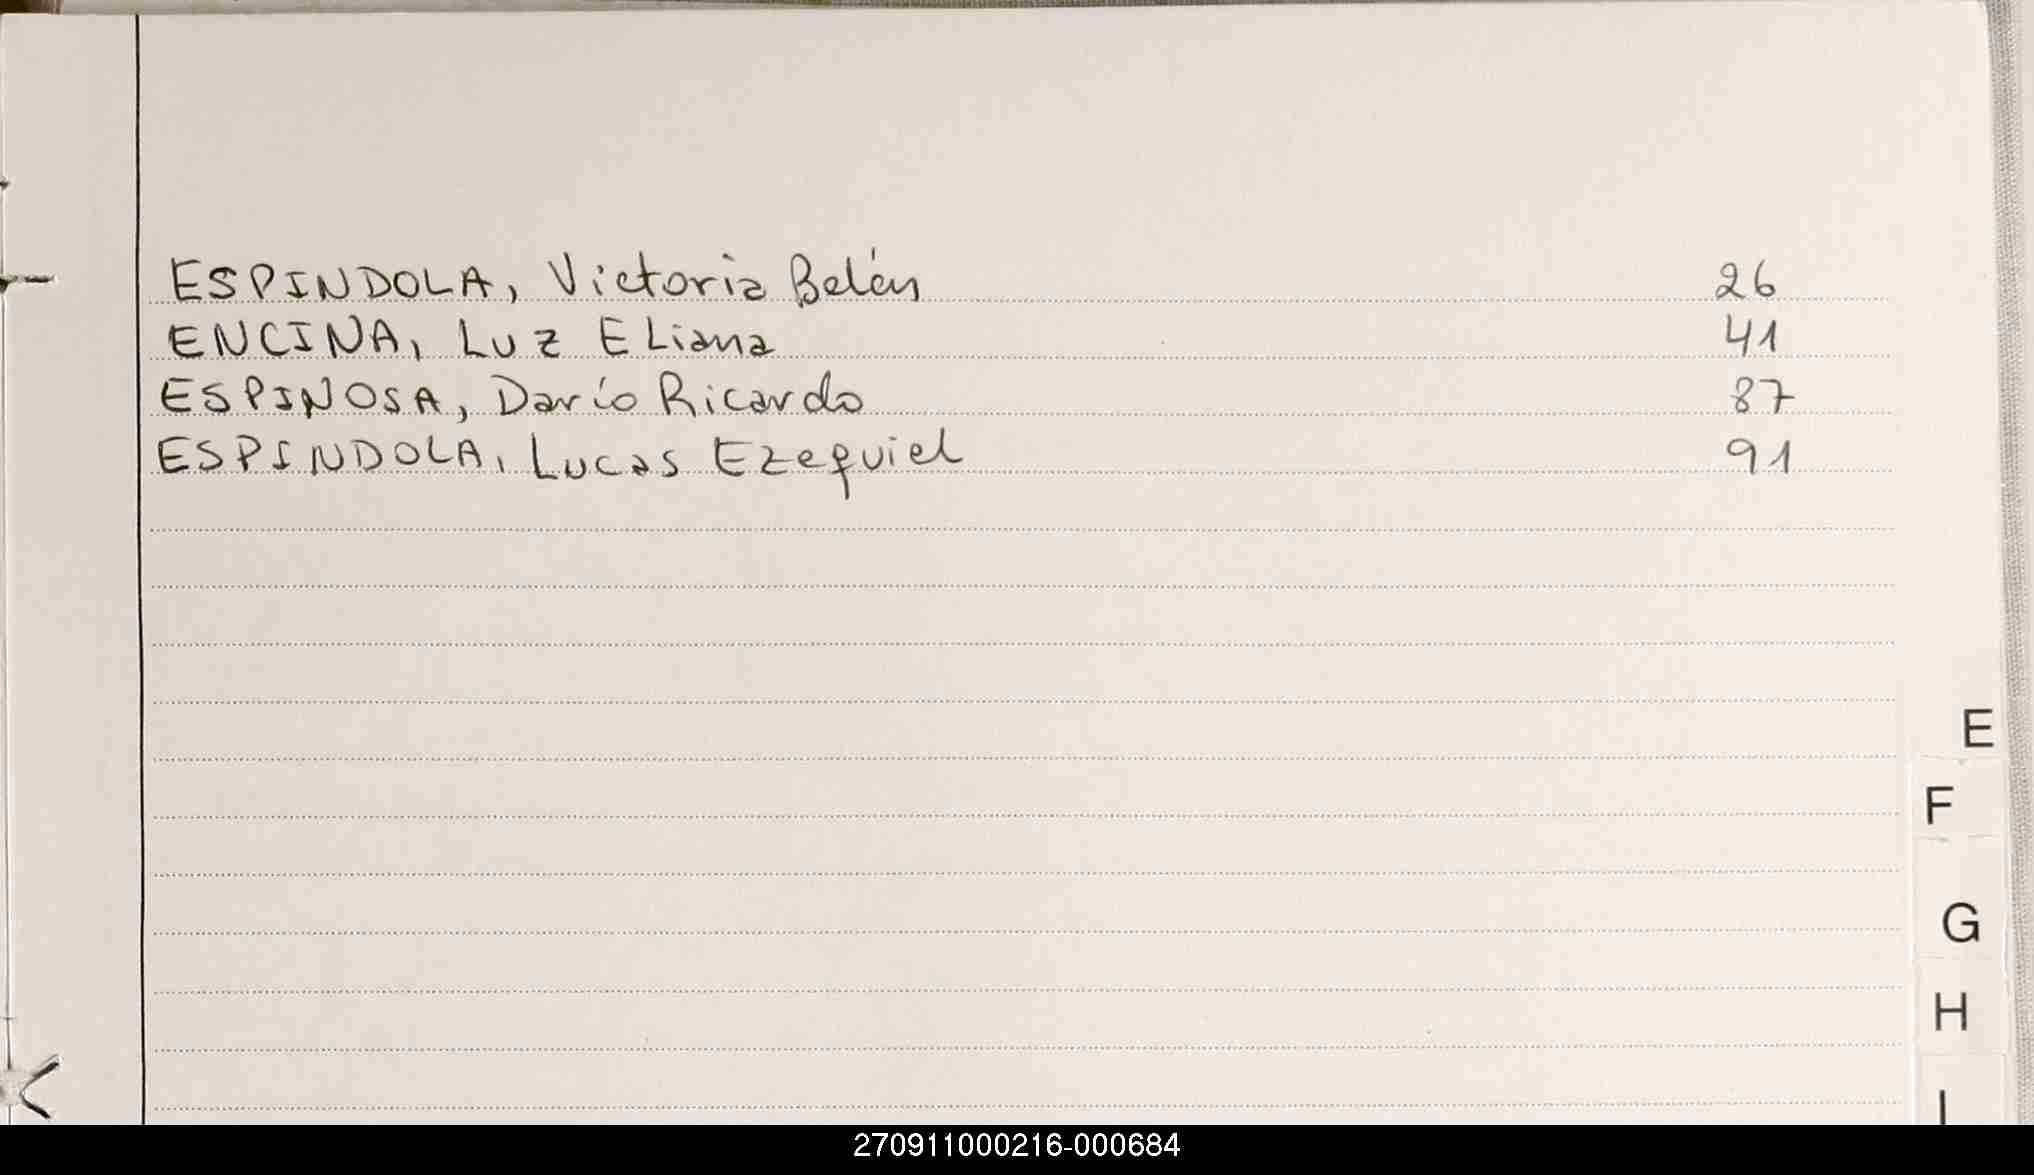 ESPINDOLA, Victoria Belén 26
ENCINA, Luz Eliana 41
ESPINOSA, Darío Ricardo 87
ESPINDOLA, Lucas Ezequiel 91
E
F
G
H
I
270911000216-000684